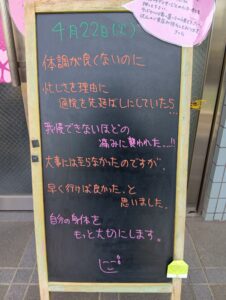 4月22日(火)
体調が良くないのに
忙しさを理由に
通院を先延ばしにしていたら…
我慢できないほどの
痛みに襲われた…!!
大事には至らなかったのですが、
早く行けば良かった。と
思いました。
自分の身体を
もっと大切にします。